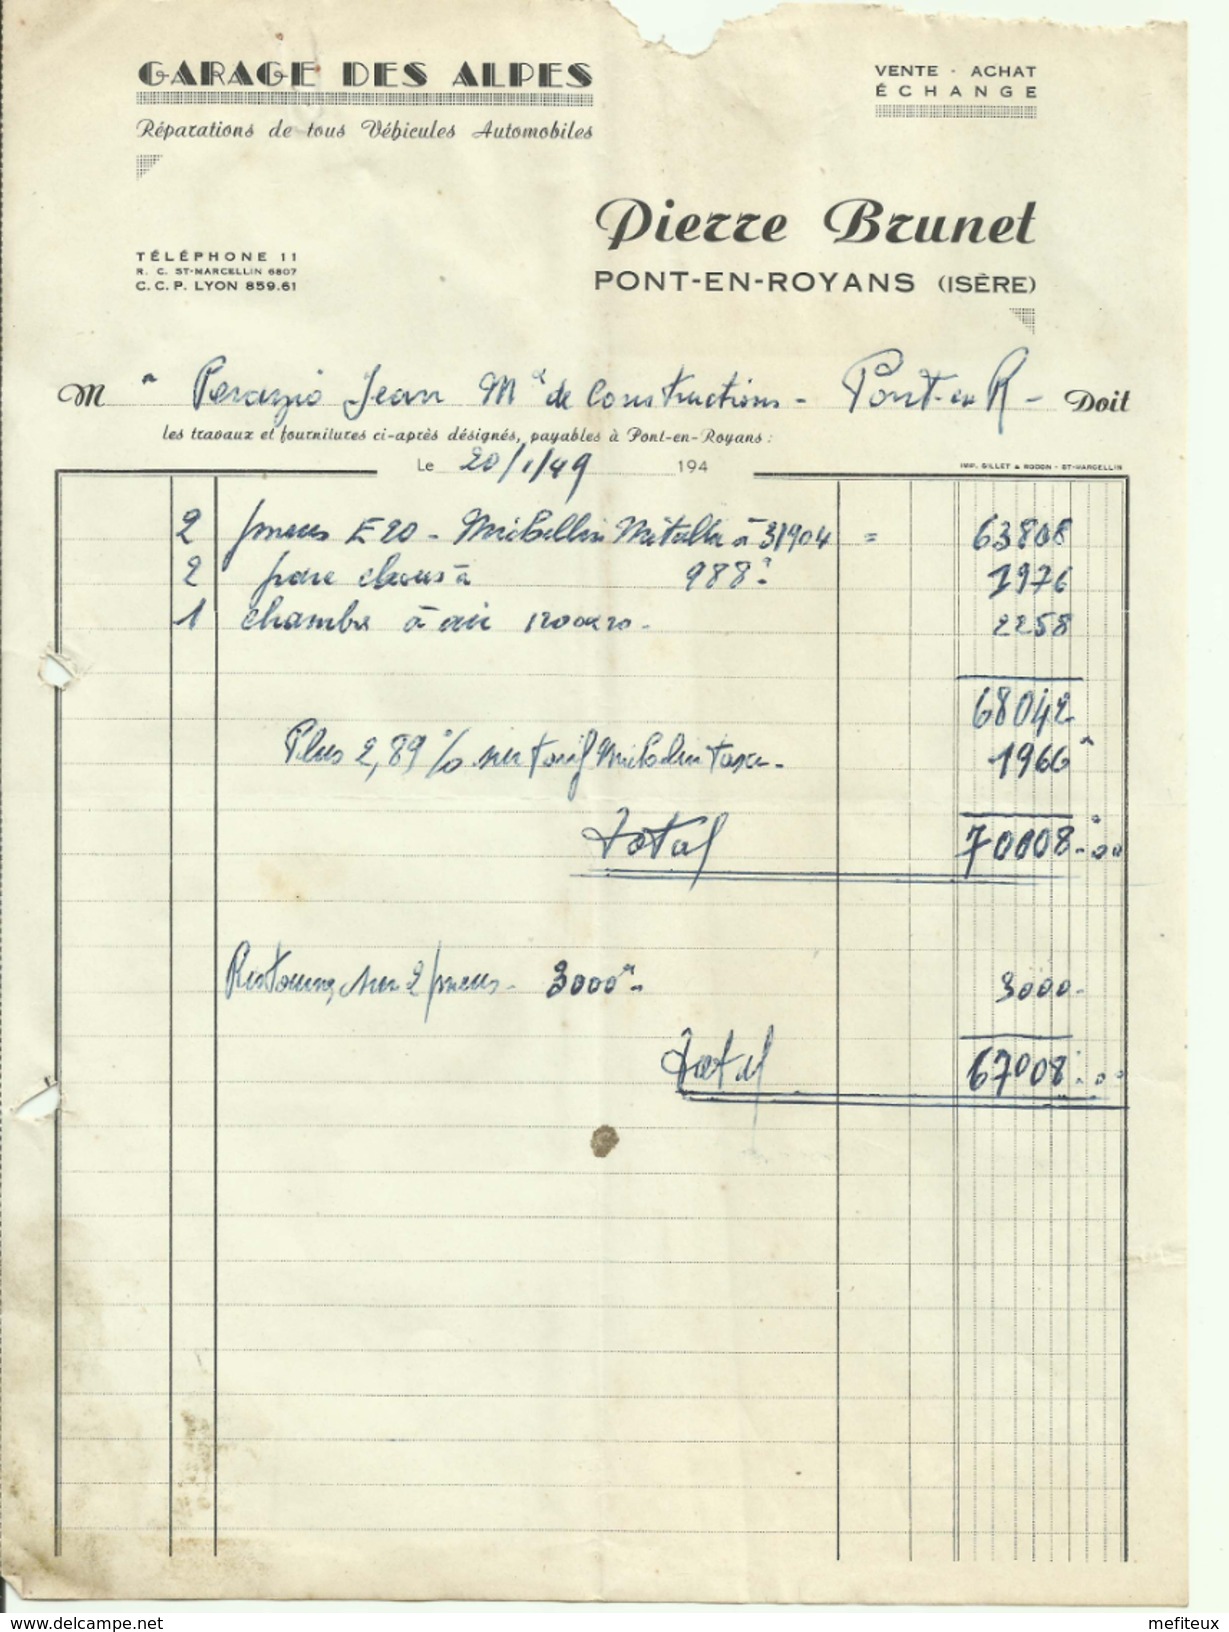 GARAGE DES ALPES
Réparations de tous Véhicules Automobiles
VENTE - ACHAT
ÉCHANGE
Pierre Brunet
PONT-EN-ROYANS (ISÈRE)
TÉLÉPHONE 11
R. C. ST-MARCELLIN 6807
C. C. P. LYON 859.61
M r Perazio Jean Md de Constructions - Pont-en R - Doit
les travaux et fournitures ci-après désignés, payables à Pont-en-Royans :
Le 20/1/49 194
IMP. GILLET & RODON - ST-MARCELLIN
2 pneus E20 - Michellin Metallic à 31904 = 63808
2 pare chocs à 988 1976
1 chambre à air 1200x20 - 2258
68042
Plus 2,89 % sur tarif Michelin taxe - 1966
Total 70008 - 00
Ristourne sur 2 pneus - 3000 - 3000 -
Total 67008 - 00
mefiteux